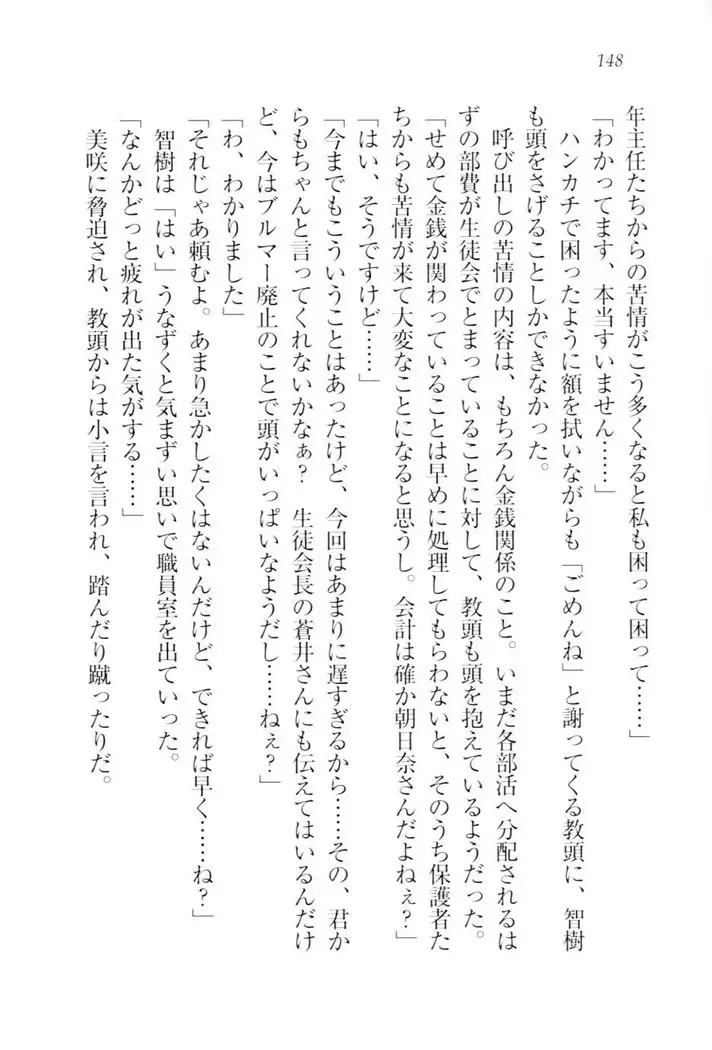 148
年主任たちからの苦情がこう多くなると私も困って困って……」
「わかってます、本当すいません……」
ハンカチで困ったように額を拭いながらも「ごめんね」と謝ってくる教頭に、智樹
も頭をさげることしかできなかった。
呼び出しの苦情の内容は、もちろん金銭関係のこと。いまだ各部活へ分配されるは
ずの部費が生徒会でとまっていることに対して、教頭も頭を抱えているようだった。
「せめて金銭が関わっていることは早めに処理してもらわないと、そのうち保護者た
ちからも苦情が来て大変なことになると思うし。会計は確か朝日奈さんだよねぇ？」
「はい、そうですけど……」
「今までもこういうことはあったけど、今回はあまりに遅すぎるから……その、君か
らもちゃんと言ってくれないかなぁ？　生徒会長の蒼井さんにも伝えてはいるんだけ
ど、今はブルマー廃止のことで頭がいっぱいなようだし……ねぇ？」
「わ、わかりました」
「それじゃあ頼むよ。あまり急かしたくはないんだけど、できれば早く……ね？」
智樹は「はい」うなずくと気まずい思いで職員室を出ていった。
「なんかどっと疲れが出た気がする……」
美咲に脅迫され、教頭からは小言を言われ、踏んだり蹴ったりだ。